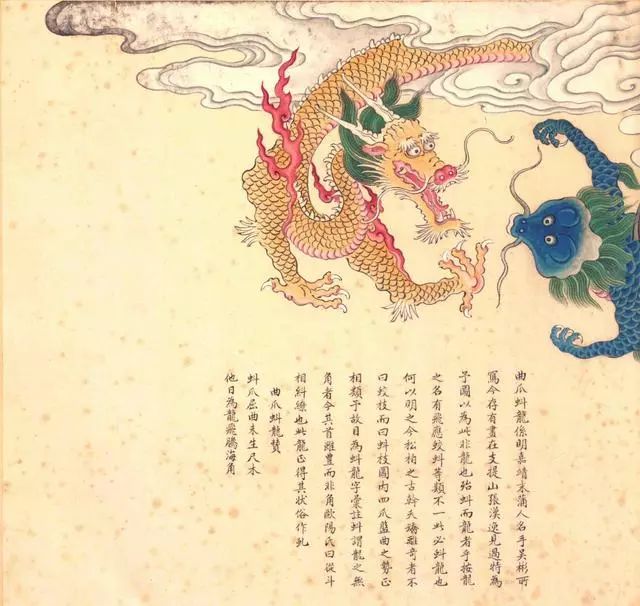 曲爪蚪龍係明嘉靖末蒲人名手吴彬所
寫今存有畫在支提山張漢逸見過特為
予圖以為此非龍也殆蚪而龍者乎按龍
之名有飛應蛟蚪等類不一此必蚪龍也
何以明之今松柏之古幹夭矯離奇者不
曰蛟枝而曰蚪枝圖内四爪藍曲之勢正
相類予故目為蚪龍字彙註蚪謂龍之無
角者今其首雖豐而非角歐陽氏曰從斗
相糾繚也此龍正得其狀俗作虬
曲爪蚪龍贊
蚪爪屈曲未生尺木
他日為龍飛騰海角